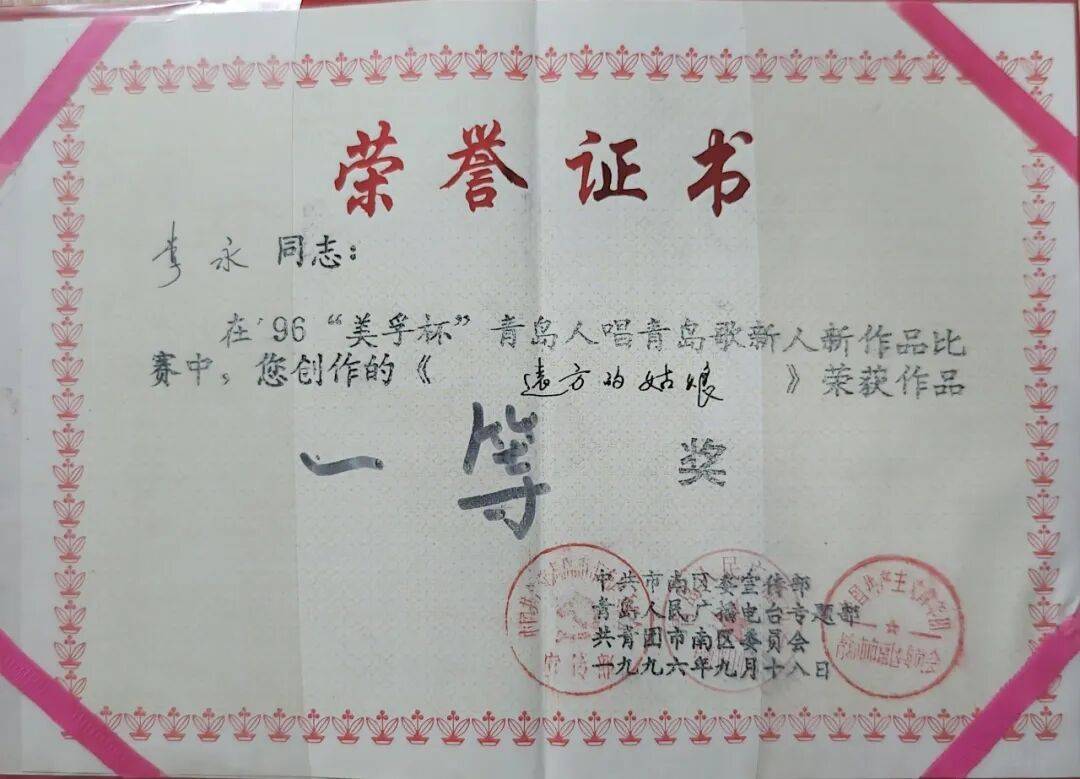 荣誉证书
李永 同志：
在'96“美孚杯”青岛人唱青岛歌新人新作品比
赛中，您创作的《远方的姑娘》荣获作品
一等奖
中共市南区委宣传部
青岛人民广播电台专题部
共青团市南区委员会
一九九六年九月十八日
宣传部